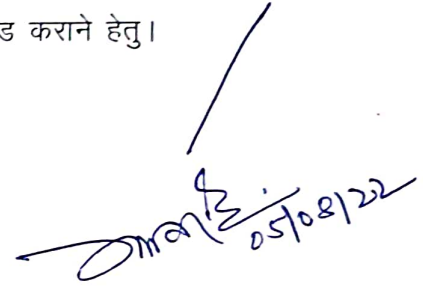 ड कराने हेतु।
05/08/22